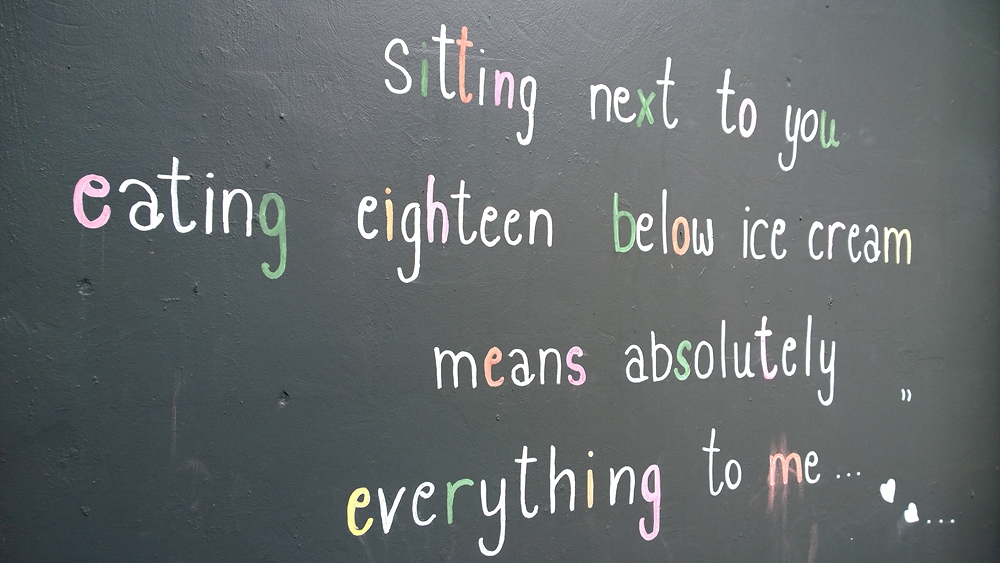 Sitting next to you
eating eighteen below ice cream
means absolutely "
everything to me...
...